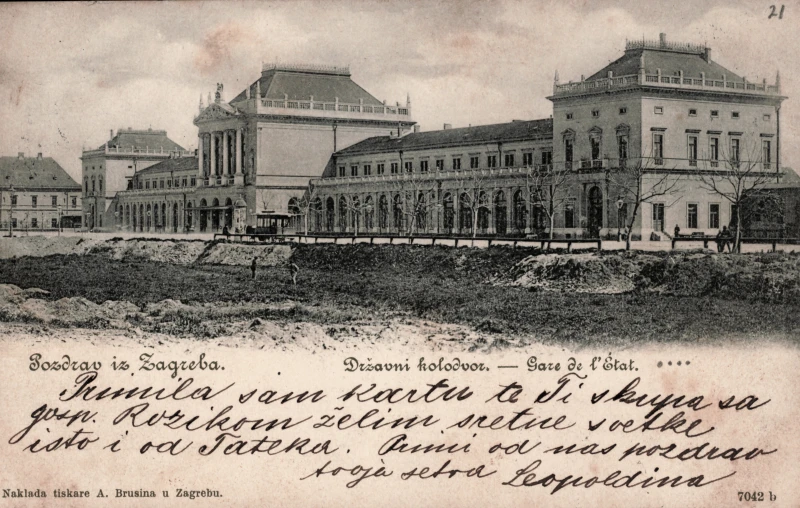 21
Pozdrav iz Zagreba.
Državni kolodvor. — Gare de l'État. ****
Primila sam kartu te Ti skupa sa
gosp. Rozikom želim sretne svetke
isto i od Tateka. Primi od nas pozdrav
tvoja sestra Leopoldina
Naklada tiskare A. Brusina u Zagrebu.
7042 b